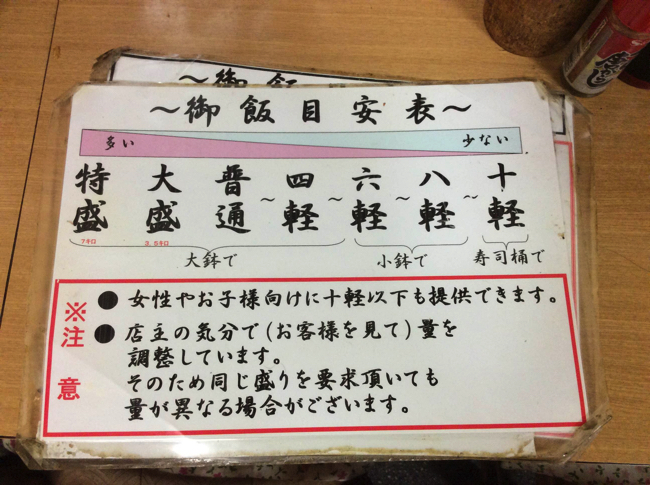 ～御飯
～御飯目安表～
多い 少ない
特盛 大盛 普通～四軽～六軽～八軽～十軽
7キロ 3.5キロ
大鉢で 小鉢で 寿司桶で
※注意
●女性やお子様向けに十軽以下も提供できます。
●店主の気分で(お客様を見て)量を
調整しています。
そのため同じ盛りを要求頂いても
量が異なる場合がございます。